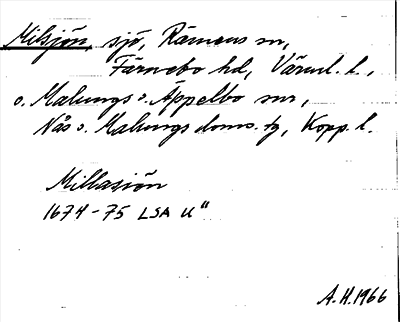 Milsjön, sjö, Rämens sn,
Färnebo hd, Värml. l.,
o. Malungs o. Äppelbo snr,
Nås o. Malungs doms. tg, Kopp. l.
Millasiön
1674-75 LSA U"
A.H. 1966